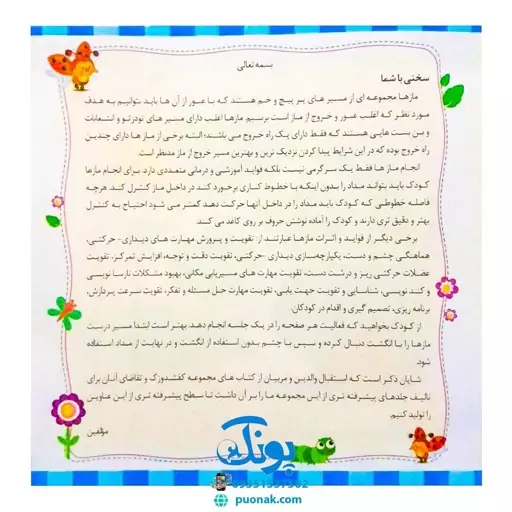 بسمه تعالی
سخنی با شما
مازها مجموعه ای از مسیر های پیر پیچ و خم هستند که با عبور از آن ها باید بتوانیم به هدف
مورد نظر که اغلب عبور و خروج از ماز است برسیم مازها اغلب دارای مسیر های تودرتو و انشعابات
و بن بست هایی هستند که فقط دارای یک راه خروج می باشند؛ البته برخی از مازها دارای چندین
راه خروج بوده که در این شرایط پیدا کردن نزدیک ترین و بهترین مسیر خروج از ماز مدنظر است.
انجام مازها فقط یک سرگرمی نیست بلکه فواید آموزشی و درمانی متعددی دارد. برای انجام مازها
کودک باید بتواند مداد را بدون اینکه با خطوط کناری برخورد کند در داخل ماز کنترل کند. هرچه
فاصله خطوطی که کودک باید مداد را در داخل آنها حرکت دهد کمتر می شود احتیاج به کنترل
بهتر و دقیق تری دارند و کودک را آماده نوشتن حروف بر روی کاغذ می کند.
برخی دیگر از فواید و اثرات مازها عبارتند از: تقویت و پرورش مهارت های دیداری- حرکتی،
هماهنگی چشم و دست، یکپارچه‌سازی دیداری -حرکتی، تقویت دقت و توجه، افزایش تمرکز، تقویت
عضلات حرکتی ریز و درشت دست، تقویت مهارت های مسیریابی مکانی، بهبود مشکلات نارسا نویسی
و کند نویسی، شناسایی و تقویت جهت یابی، تقویت مهارت حل مسئله و تفکر، تقویت سرعت پردازش،
برنامه ریزی، تصمیم گیری و اقدام در کودکان.
از کودک بخواهید که فعالیت هر صفحه را در یک جلسه انجام دهد. بهتر است ابتدا مسیر درست
مازها را با انگشت دنبال کرده و سپس با چشم بدون استفاده از انگشت و در نهایت از مداد استفاده
شود.
شایان ذکر است که استقبال والدین و مربیان از کتاب های مجموعه کفشدوزک و تقاضای آنان برای
تالیف جلدهای پیشرفته تری از این مجموعه ما را بر آن داشت تا سطح پیشرفته تری از این عناوین
را تولید کنیم.
مؤلفین
پونک
puonak.com